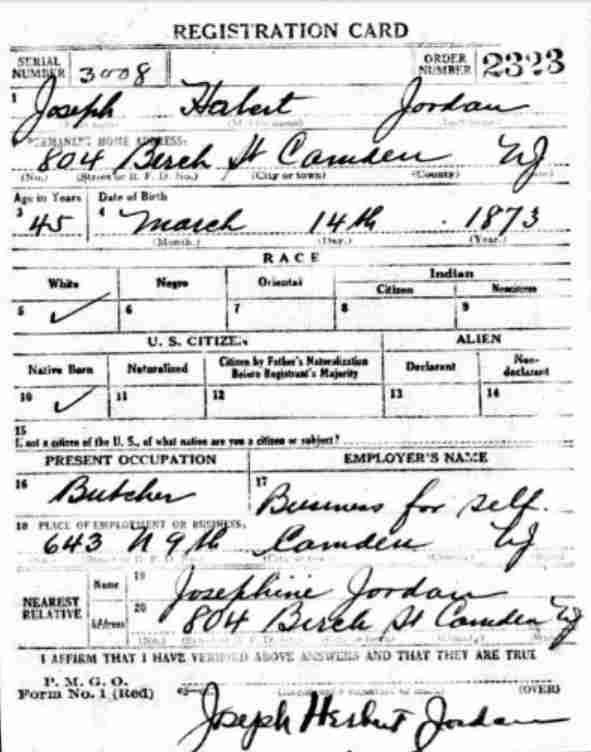 REGISTRATION CARD
SERIAL NUMBER 3008 ORDER NUMBER 2323
1 Joseph Herbert Jordan
PERMANENT HOME ADDRESS:
804 Berch St Camden NJ
(No.) (Street or R. F. D. No.) (City or town) (County) (State)
Age in Years Date of Birth
3 45 4 March 14th 1873
(Month.) (Day.) (Year.)
RACE
White Negro Oriental Indian
Citizen Noncitizen
5 ✓ 6 7 8 9
U. S. CITIZEN ALIEN
Native Born Naturalized Citizen by Father's Naturalization Before Registrant's Majority Declarant Non-declarant
10 ✓ 11 12 13 14
15
If not a citizen of the U. S., of what nation are you a citizen or subject?
PRESENT OCCUPATION EMPLOYER'S NAME
16 Butcher 17 Business for self.
18 PLACE OF EMPLOYMENT OR BUSINESS:
643 N 9th Camden NJ
NEAREST RELATIVE Name 19 Josephine Jordan
Address 20 804 Berch St Camden NJ
I AFFIRM THAT I HAVE VERIFIED ABOVE ANSWERS AND THAT THEY ARE TRUE
P. M. G. O.
Form No. 1 (Red) (OVER)
Joseph Herbert Jordan